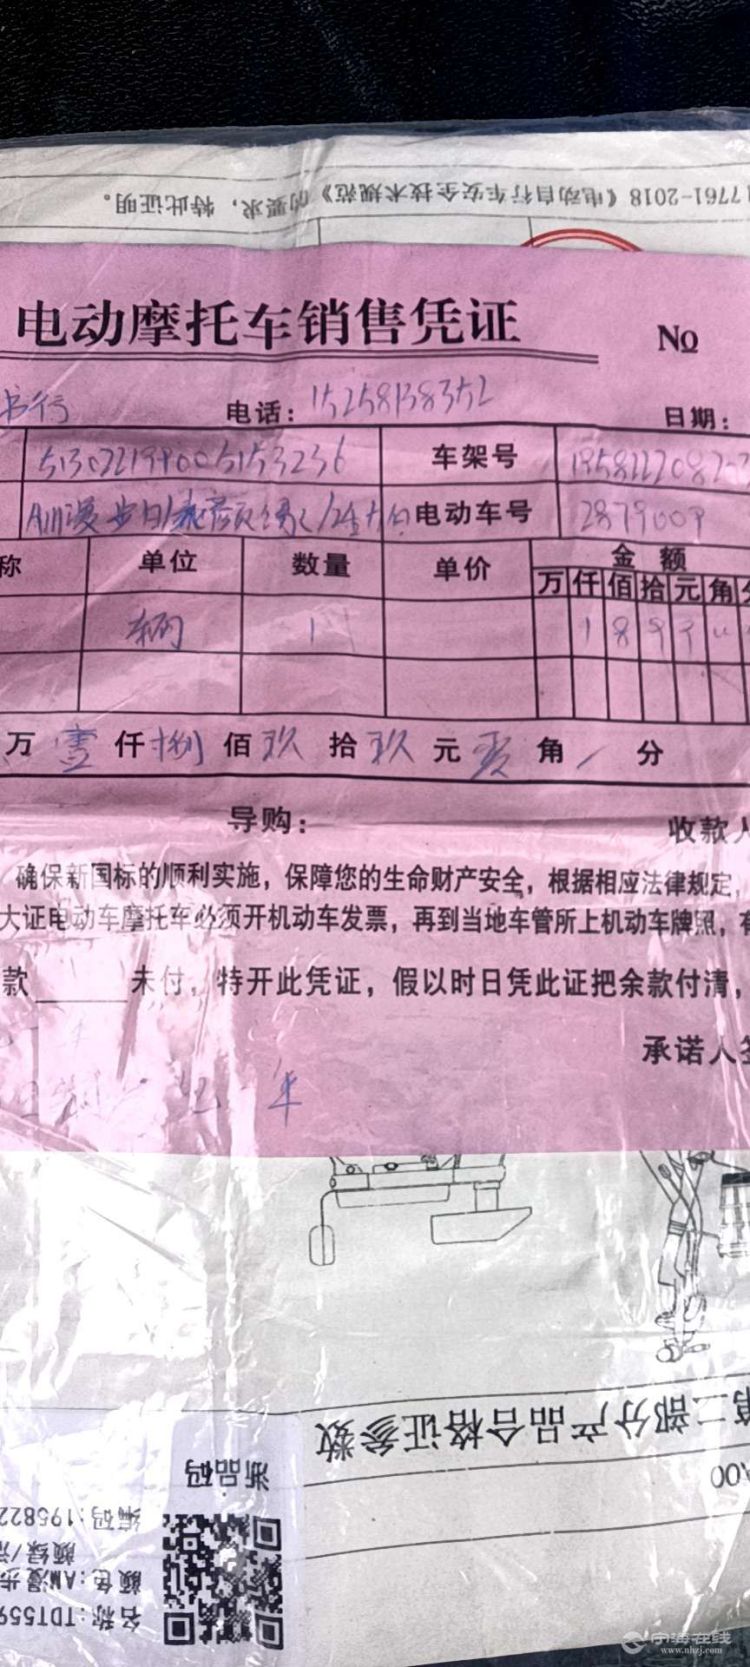 17761-2018《电动自行车安全技术规范》的要求，特此证明。
电动摩托车销售凭证 №
书行 电话：15258138352 日期：
车架号
电动车号 2879009
称 单位 数量 单价 金额
万 仟 佰 拾 元 角 分
辆 1 1 8 9 9
万 壹 仟 捌 佰 玖 拾 玖 元 角 分
导购： 收款人
确保新国标的顺利实施，保障您的生命财产安全，根据相应法律规定，
大证电动车摩托车必须开机动车发票，再到当地车管所上机动车牌照，有
款 未付，特开此凭证，假以时日凭此证把余款付清，
承诺人签
年
第二部分产品合格证参数
浙品码
编码:195822
颜绿/
颜色:AM漫步
名称:TDT559
宁海在线
www.nhzj.com